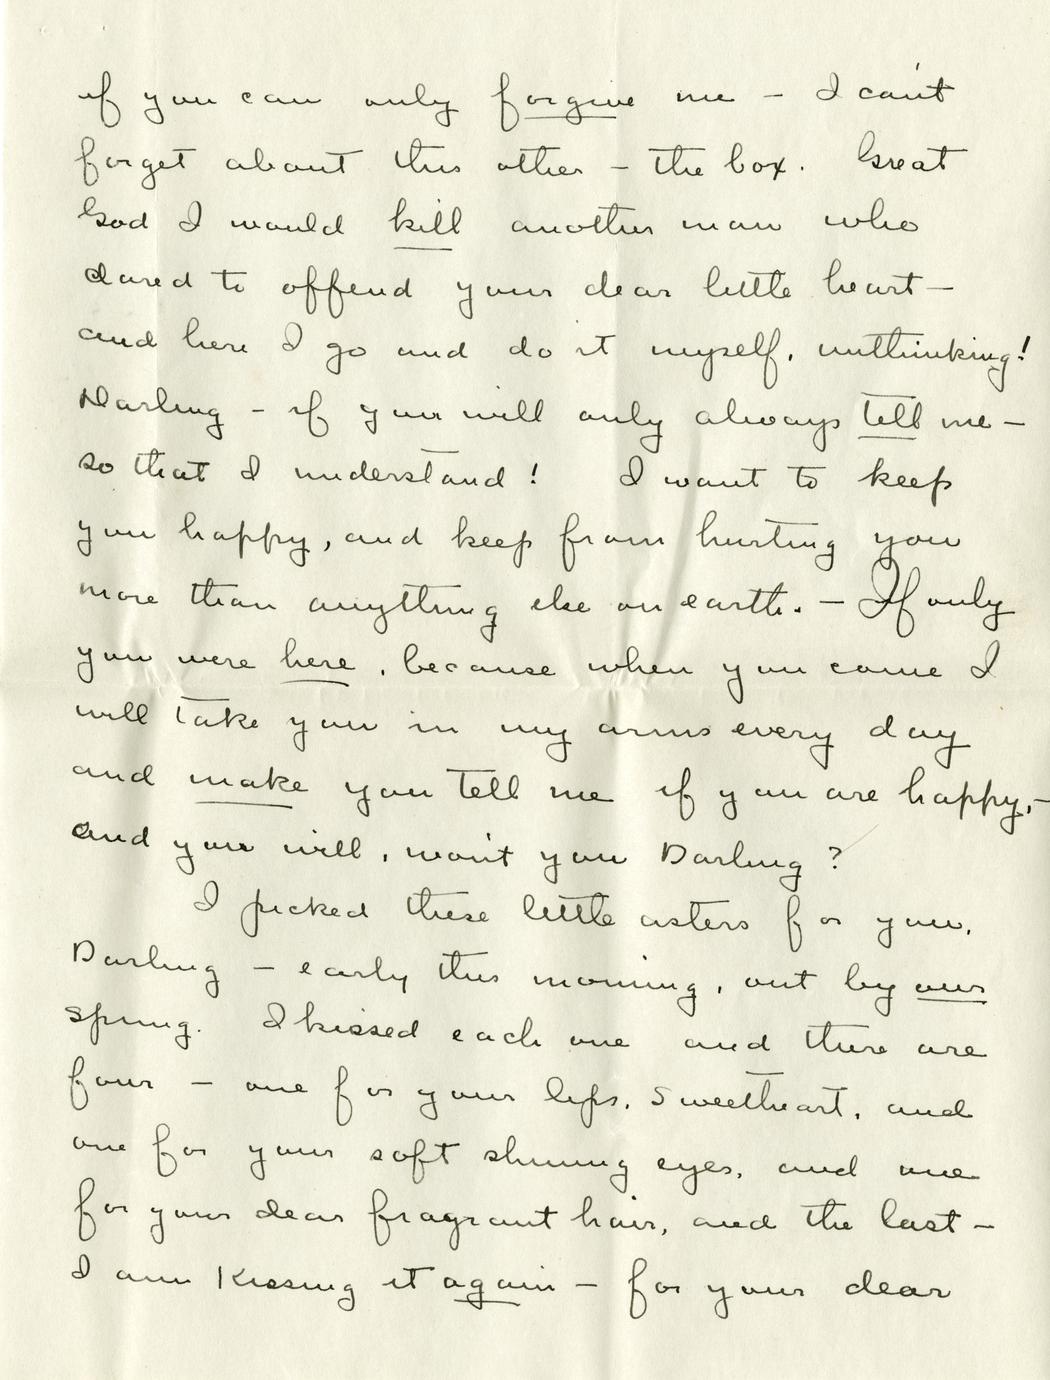 if you can only forgive me – I can't
forget about this other – the box. Great
God I would kill another man who
dared to offend your dear little heart –
and here I go and do it myself, unthinking!
Darling – if you will only always tell me –
so that I understand! I want to keep
you happy, and keep from hurting you
more than anything else on earth. – If only
you were here, because when you come I
will take you in my arms every day
and make you tell me if you are happy, –
and you will, won't you Darling?
I picked these little asters for you,
Darling – early this morning, out by our
spring. I kissed each one and there are
four – one for your lips, Sweetheart, and
one for your soft shining eyes, and one
for your dear fragrant hair, and the last –
I am Kissing it again – for your dear